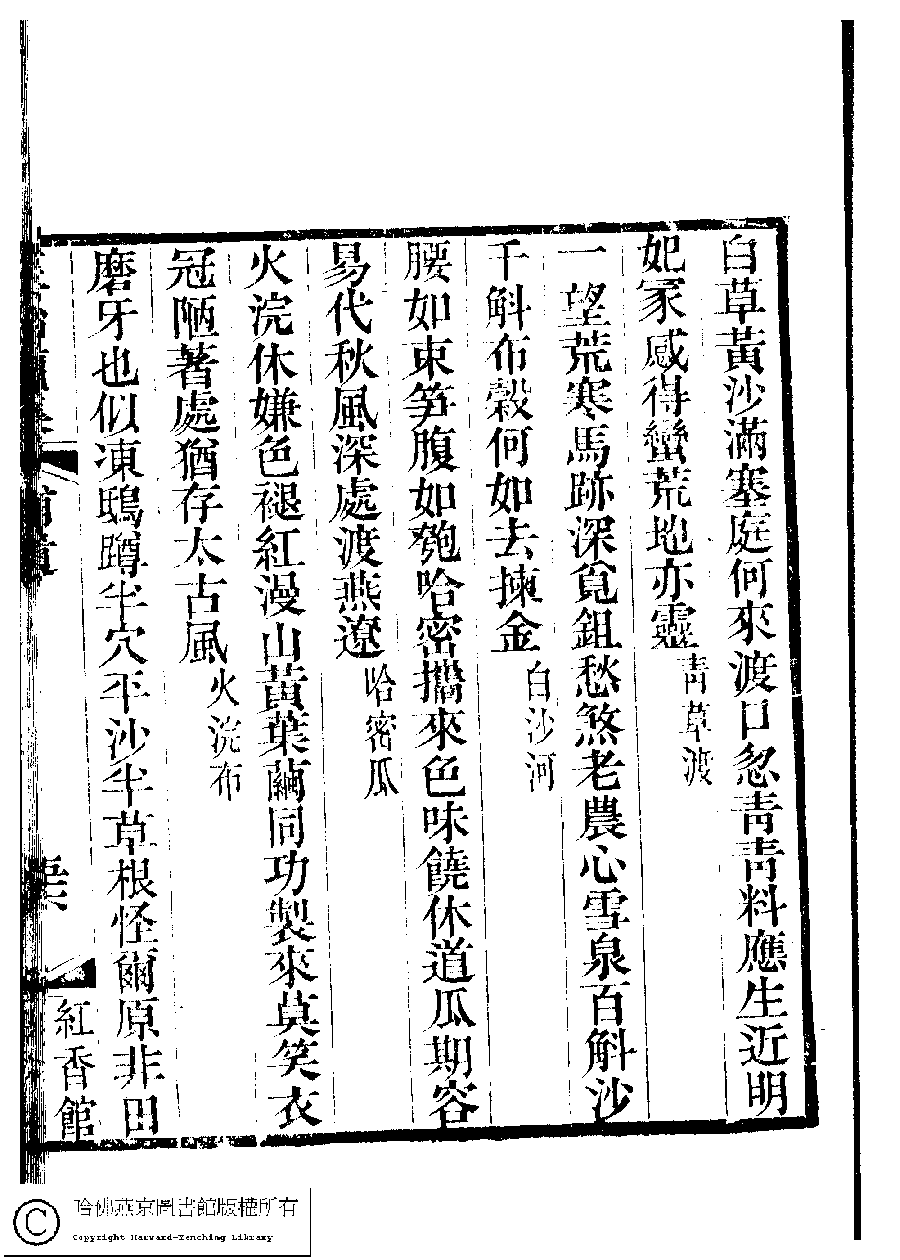 白草黃沙滿塞庭何來渡口忽青青料應生近明
妃冢感得蠻荒地亦靈青草渡
一望荒寒馬跡深覓鉏愁煞老農心雪泉百斛沙
千斛布穀何如去揀金白沙河
腰如束笋腹如匏哈密攜來色味饒休道瓜期容
易代秋風深處渡燕遼哈密瓜
火浣休嫌色褪紅漫山黃葉繭同功製來莫笑衣
冠陋著處猶存太古風火浣布
磨牙也似凍鴟蹲半穴平沙半草根怪爾原非田
紅香館
哈佛燕京圖書館版權所有
Copyright Harvard-Yenching Library